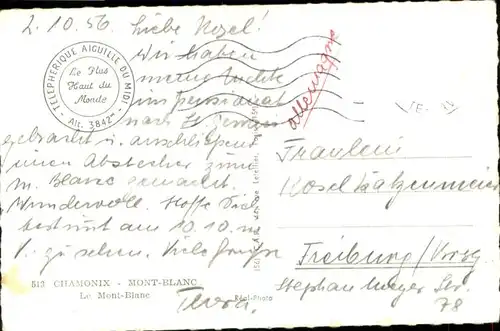 2.10.56. Liebe Rosel!
Wir haben
meine Nichte
ins Pensionat
nach St. Germain
gebracht u. anschließend
einen Abstecher zum
M. Blanc gemacht.
Wundervoll. Hoffe Dich
bestimmt am 10.10. in
F. zu sehen. Viele Grüße
TELEPHERIQUE AIGUILLE DU MIDI
Le Plus
Haut du
Monde
Alt. 3842m
512 CHAMONIX - MONT-BLANC
Le Mont-Blanc
Réal-Photo
allemagne
Fräulein
Rosel Katzenmeier
Freiburg/Brsg.
Stephan Meyer Str.
78